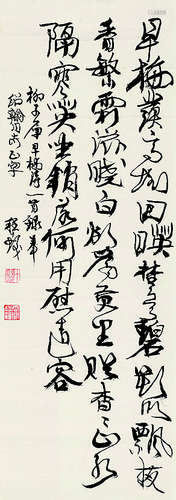 早梅發高樹迥暎楚天碧朔吹飄夜
香繁霜滋曉白欲為萬里贈杳杳山水
隔寒英坐銷落何用慰遠客
柳子厚早梅詩一首錄奉
正字